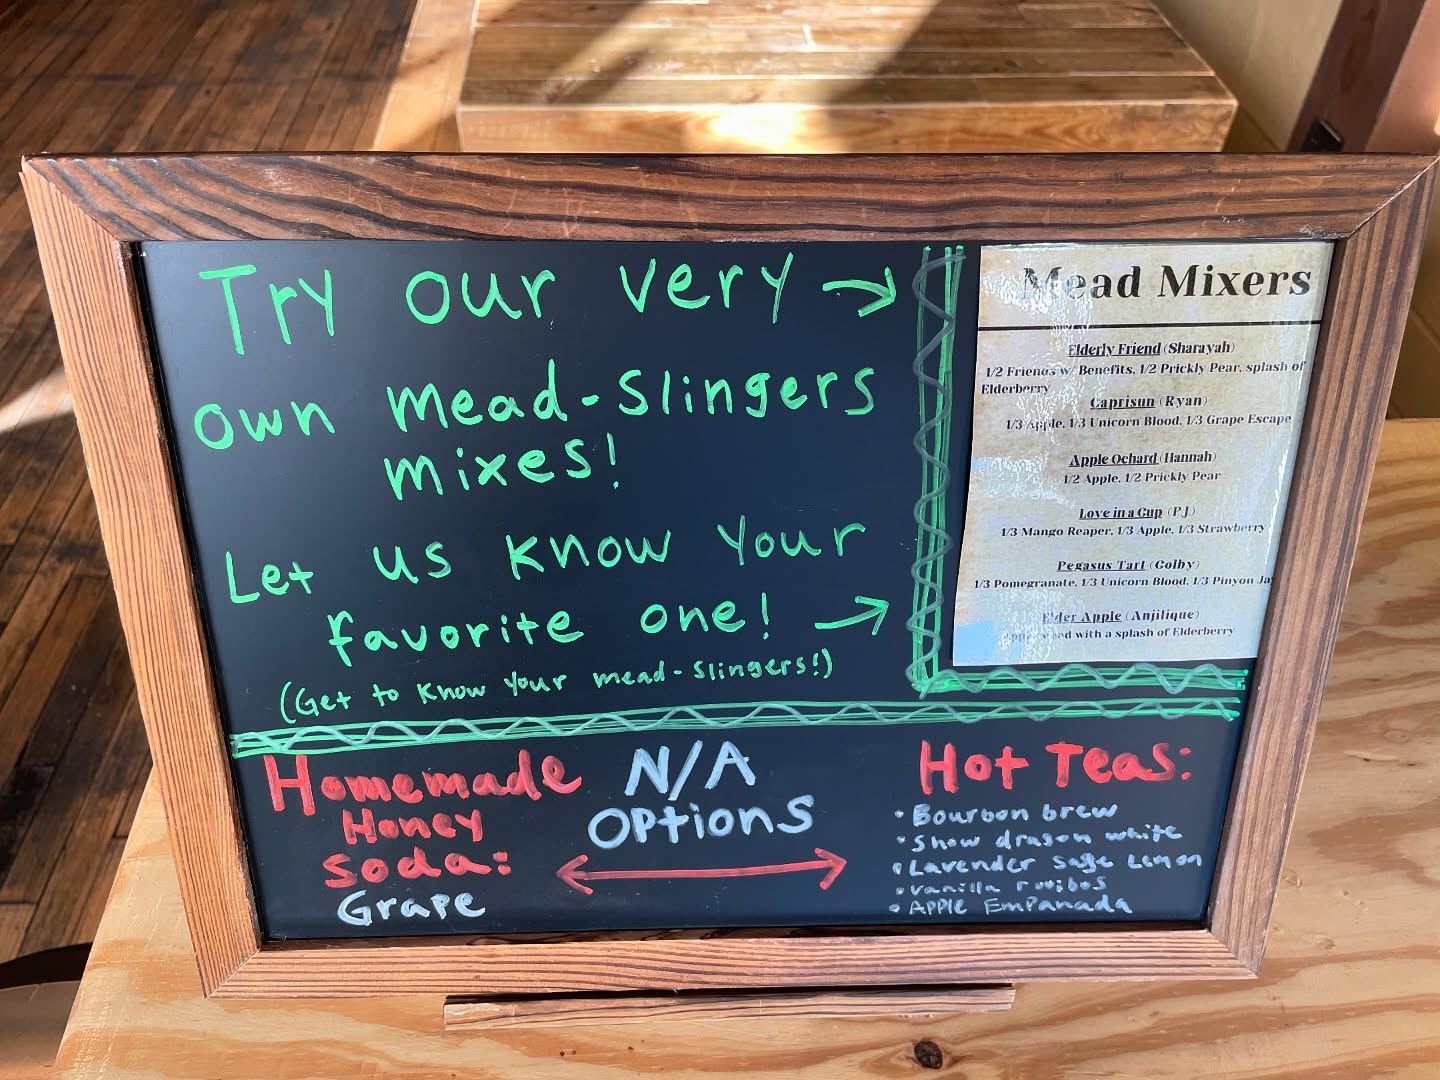 Try our very →
own mead-slingers
mixes!
Let us know your
favorite one! →
(Get to know your mead-slingers!)
Mead Mixers
Elderly Friend (Sharayah)
1/2 Friends w/ Benefits, 1/2 Prickly Pear, splash of
Elderberry
Caprisun (Ryan)
1/3 Apple, 1/3 Unicorn Blood, 1/3 Grape Escape
Apple Ochard (Hannah)
1/2 Apple, 1/2 Prickly Pear
Love in a Cup (PJ)
1/3 Mango Reaper, 1/3 Apple, 1/3 Strawberry
Pegasus Tart (Colby)
1/3 Pomegranate, 1/3 Unicorn Blood, 1/3 Pinyon Jay
Elder Apple (Anjilique)
with a splash of Elderberry
Homemade
Honey
Soda:
Grape
N/A
Options
Hot Teas:
• Bourbon brew
• Snow dragon white
• Lavender Sage Lemon
• vanilla rooibos
• APPLE EmPanada